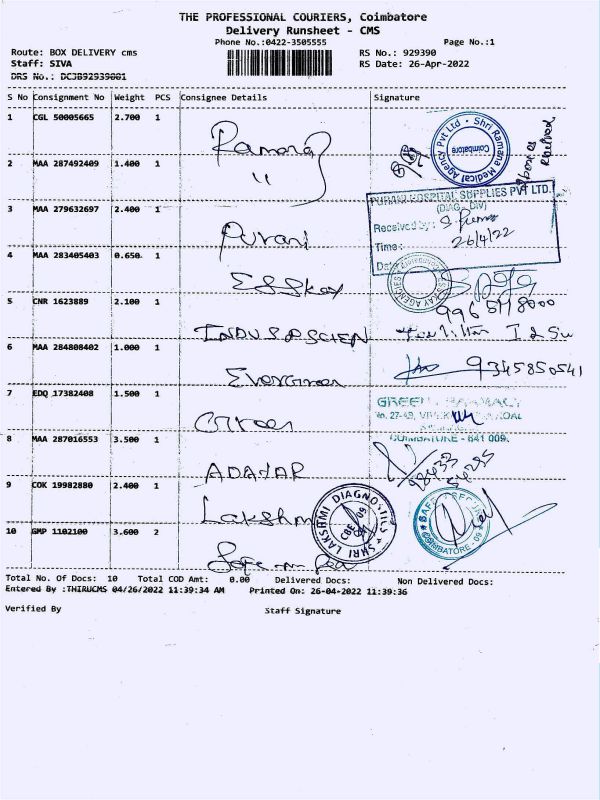 THE PROFESSIONAL COURIERS, Coimbatore
Delivery Runsheet - CMS
Phone No.:0422-3505555
Page No.:1
Route: BOX DELIVERY cms
RS No.: 929390
Staff: SIVA
RS Date: 26-Apr-2022
DRS No.: DCJB92939001
S No Consignment No Weight PCS Consignee Details Signature
1 CGL 50005665 2.700 1
Ramana
Shri Ramana Medical Agency Pvt Ltd
Coimbatore
received
2 MAA 287492409 1.400 1
"
PURANI HOSPITAL SUPPLIES PVT LTD.
(DIAG. DIV)
3 MAA 279632697 2.400 1
Purani
Received by:
Time: 26/4/22
Date
4 MAA 283405403 0.650 1
ESSkay
AGENCIES
5 CNR 1623889 2.100 1
INDUSOSCIEN
6 MAA 284808402 1.000 1
Evergreen
9345850541
7 EDQ 17382408 1.500 1
Green
GREEN PHARMACY
COIMBATORE - 641 009.
8 MAA 287016553 3.500 1
ADAYAR
98433
54295
9 COK 19982880 2.400 1
Lakshmi
SHRI LAKSHMI DIAGNOSTICS
CBE 09
COIMBATORE - 09
10 GMP 1102100 3.600 2
Total No. Of Docs: 10 Total COD Amt: 0.00 Delivered Docs: Non Delivered Docs:
Entered By :THIRUCMS 04/26/2022 11:39:34 AM Printed On: 26-04-2022 11:39:36
Verified By Staff Signature